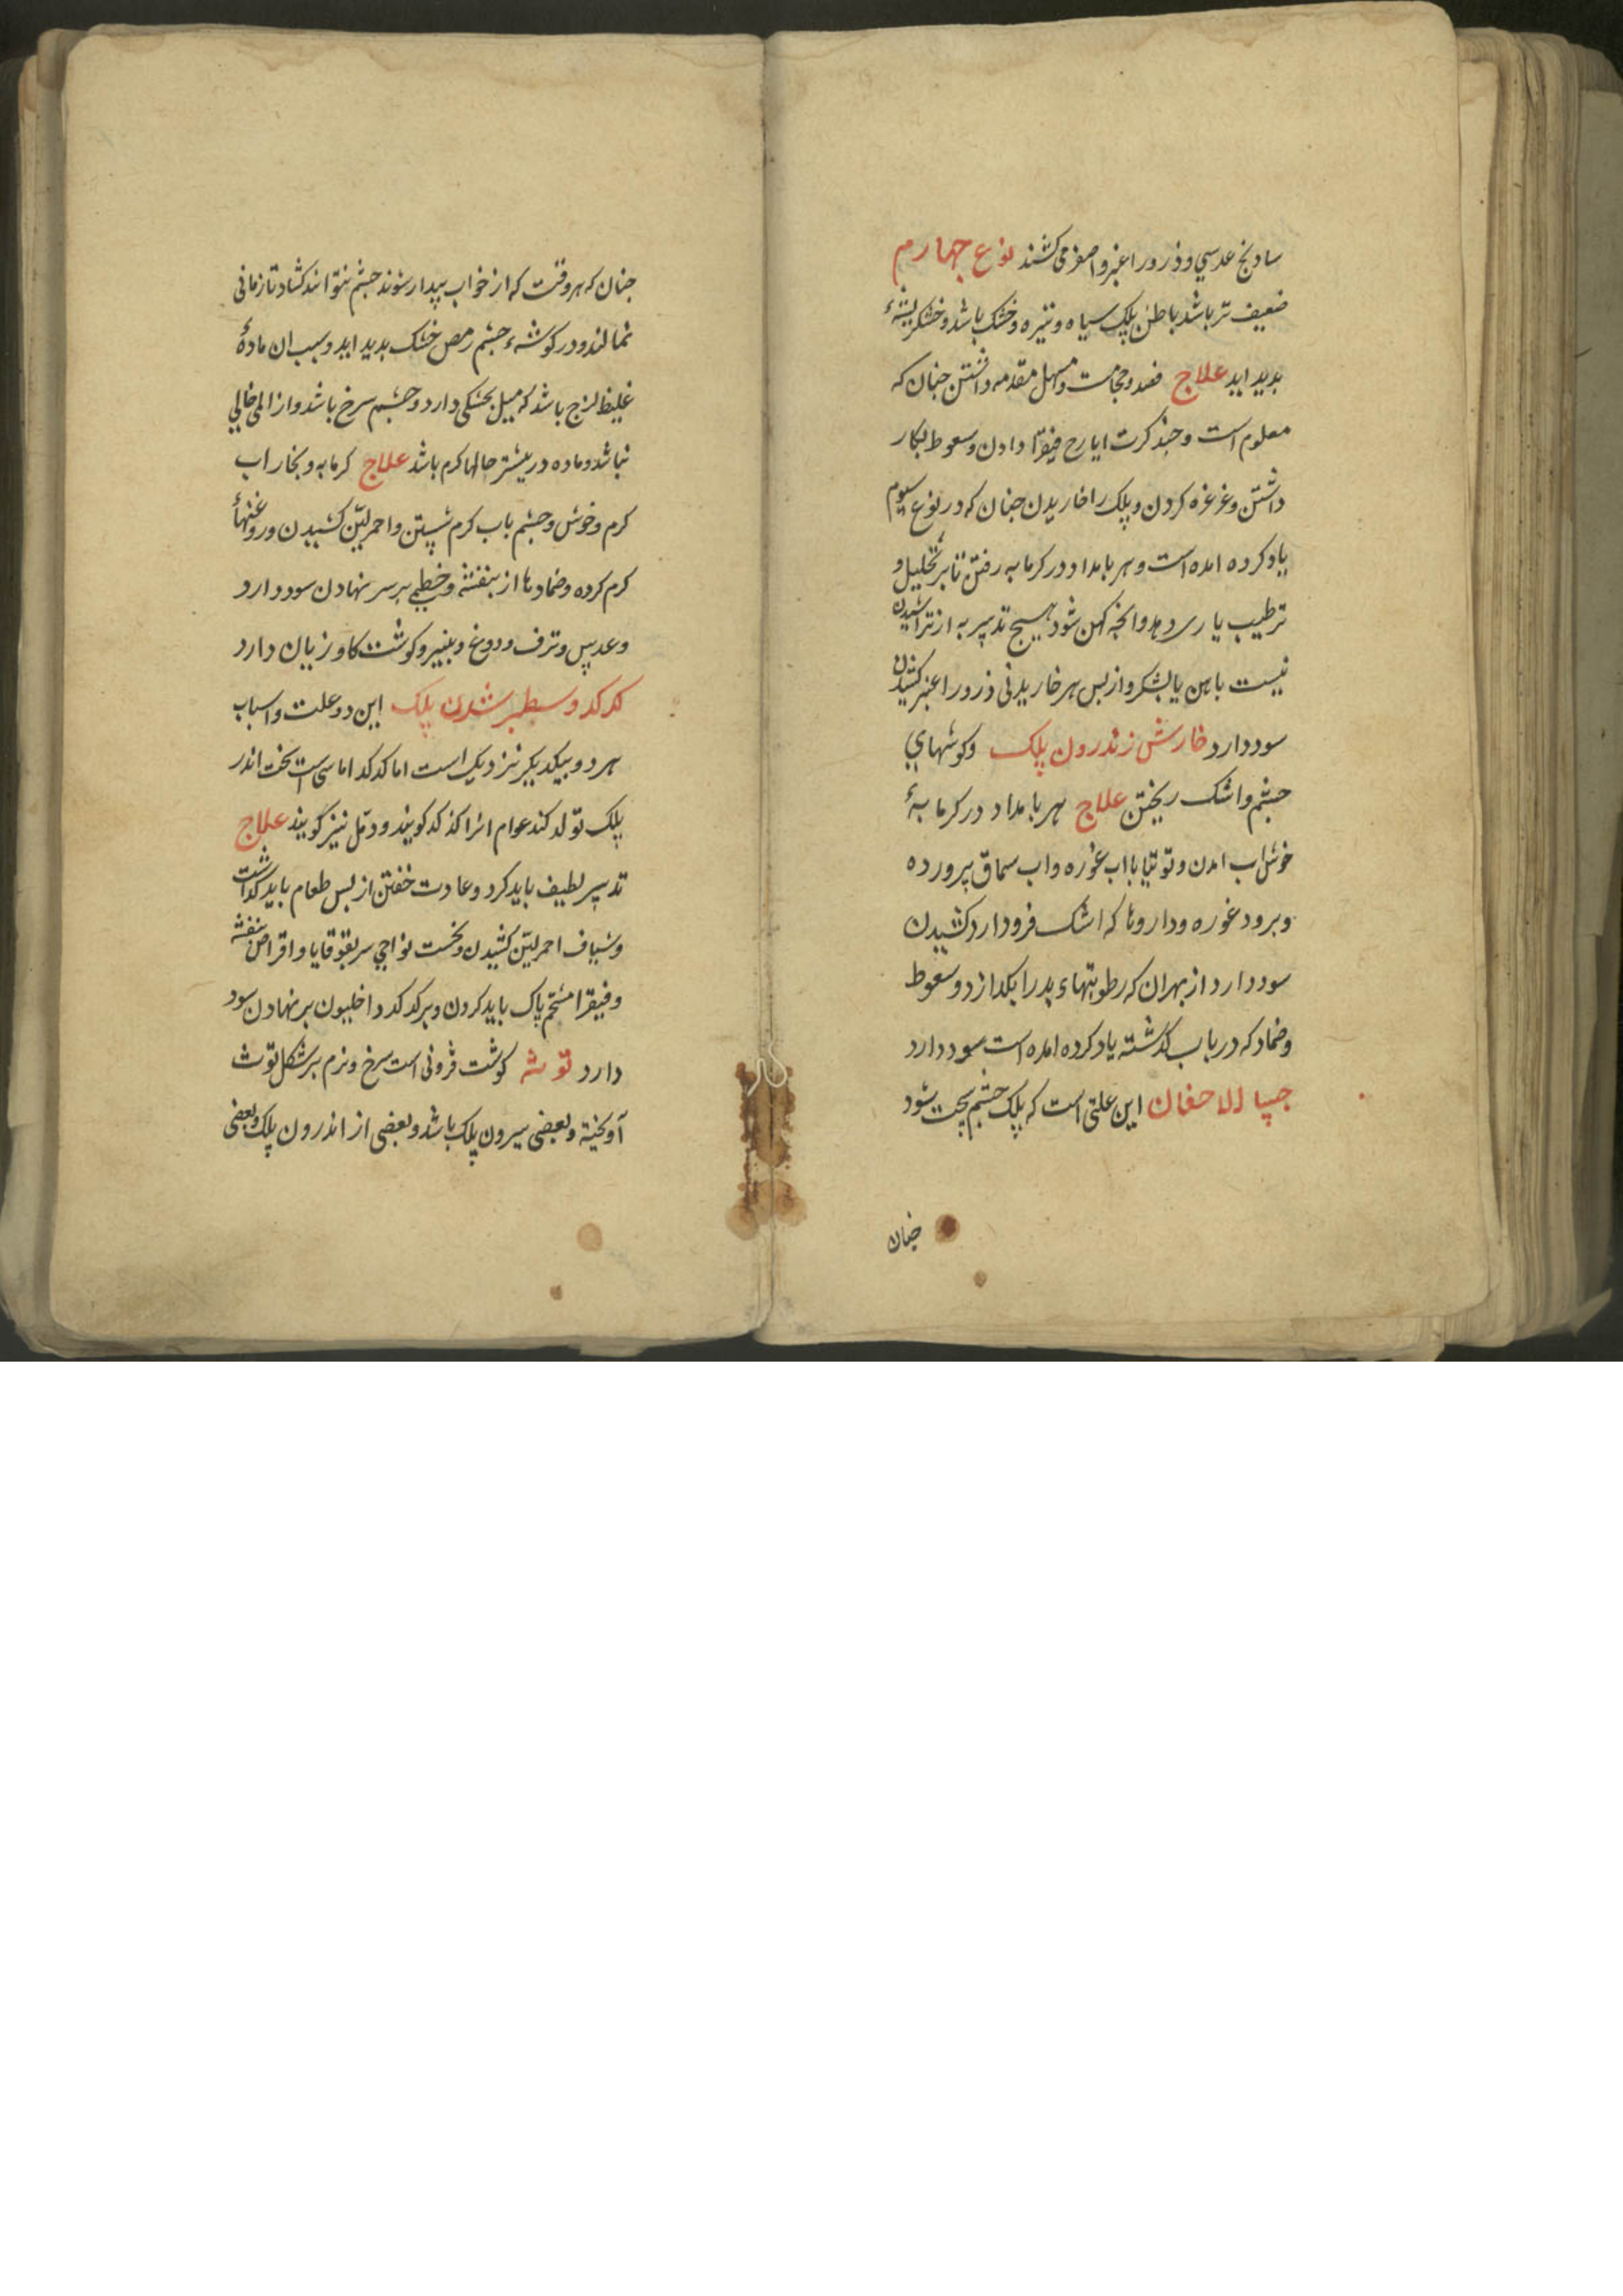 سادنج عدسی و ذرور اغبر و اصفر می کشند نوع چهارم
ضعیف تر باشد باطن پلک سیاه و تیره و خشک باشد و خشکریشهٔ
بدید اید علاج فصد و حجامت و مسهل مقدمه داشتن جنان که
معلوم است و جند کرت ایارج فیقرا دادن و سعوط بکار
داشتن و غرغره کردن و پلک را خاریدن جنان که در نوع سیوم
یاد کرده امده است و هر بامداد در کرمابه رفتن تا بر تحلیل و
ترطیب یاری دهد و انچه کهن شود هیچ تدبیر به از تراشیدن
نیست باهن یا بشکر و از بس هر خاریدنی ذرور اغبر کشیدن
سود دارد خارش زندرون پلک و کوشهای
جشم و اشک ریختن علاج هر بامداد در کرمابهٔ
خوش اب امدن و توتیا باب غوره و اب سماق پرورده
و برود غوره و داروها که اشک فرود ارد کشیدن
سود دارد از بهر ان که رطوبتهاء بد را بکدازد و سعوط
و ضماد که در باب کذشته یاد کرده امده است سود دارد
جساالاجفان این علتی است که پلک جشم سخت شود
جنان
جنان که هر وقت که از خواب بیدار شوند جشم نتوانند کشاد تا زمانی
نمالند و در کوشهٔ جشم رمص خشک بدید اید و سبب ان مادهٔ
غلیظ لزج باشد که میل بخشکی دارد و جشم سرخ باشد و از المی خالی
نباشد و ماده در بیشتر حالها کرم باشد علاج کرمابه و بخار اب
کرم و خوش و جشم باب کرم شستن و احمر لیّن کشیدن و روغنهأ
کرم کرده و ضمادها از بنفشه و خطمی بر سر نهادن سود دارد
و عدس و ترف و دوغ و بنیر و کوشت کاو زیان دارد
کدکد و سطبر شدن پلک این دو علت و اسباب
هر دو بیکدیکر نزدیک است اما کدکد اماسی است سخت اندر
پلک تولد کند عوام انرا کدکد کویند و دمل نیز کویند علاج
تدبیر لطیف باید کرد و عادت خفتن از بس طعام باید کذاشت
و شیاف احمر لیّن کشیدن و نخست نواحی سر بقوقایا و اقراص بنفشه
و فیقرا مشحّم پاک باید کردن و بر کدکد داخلیون بر نهادن سود
دارد توثه کوشت فزونی است سرخ و نرم بر شکل توث
آویخته و بعضی بیرون پلک باشد و بعضی از اندرون پلک و بعضی